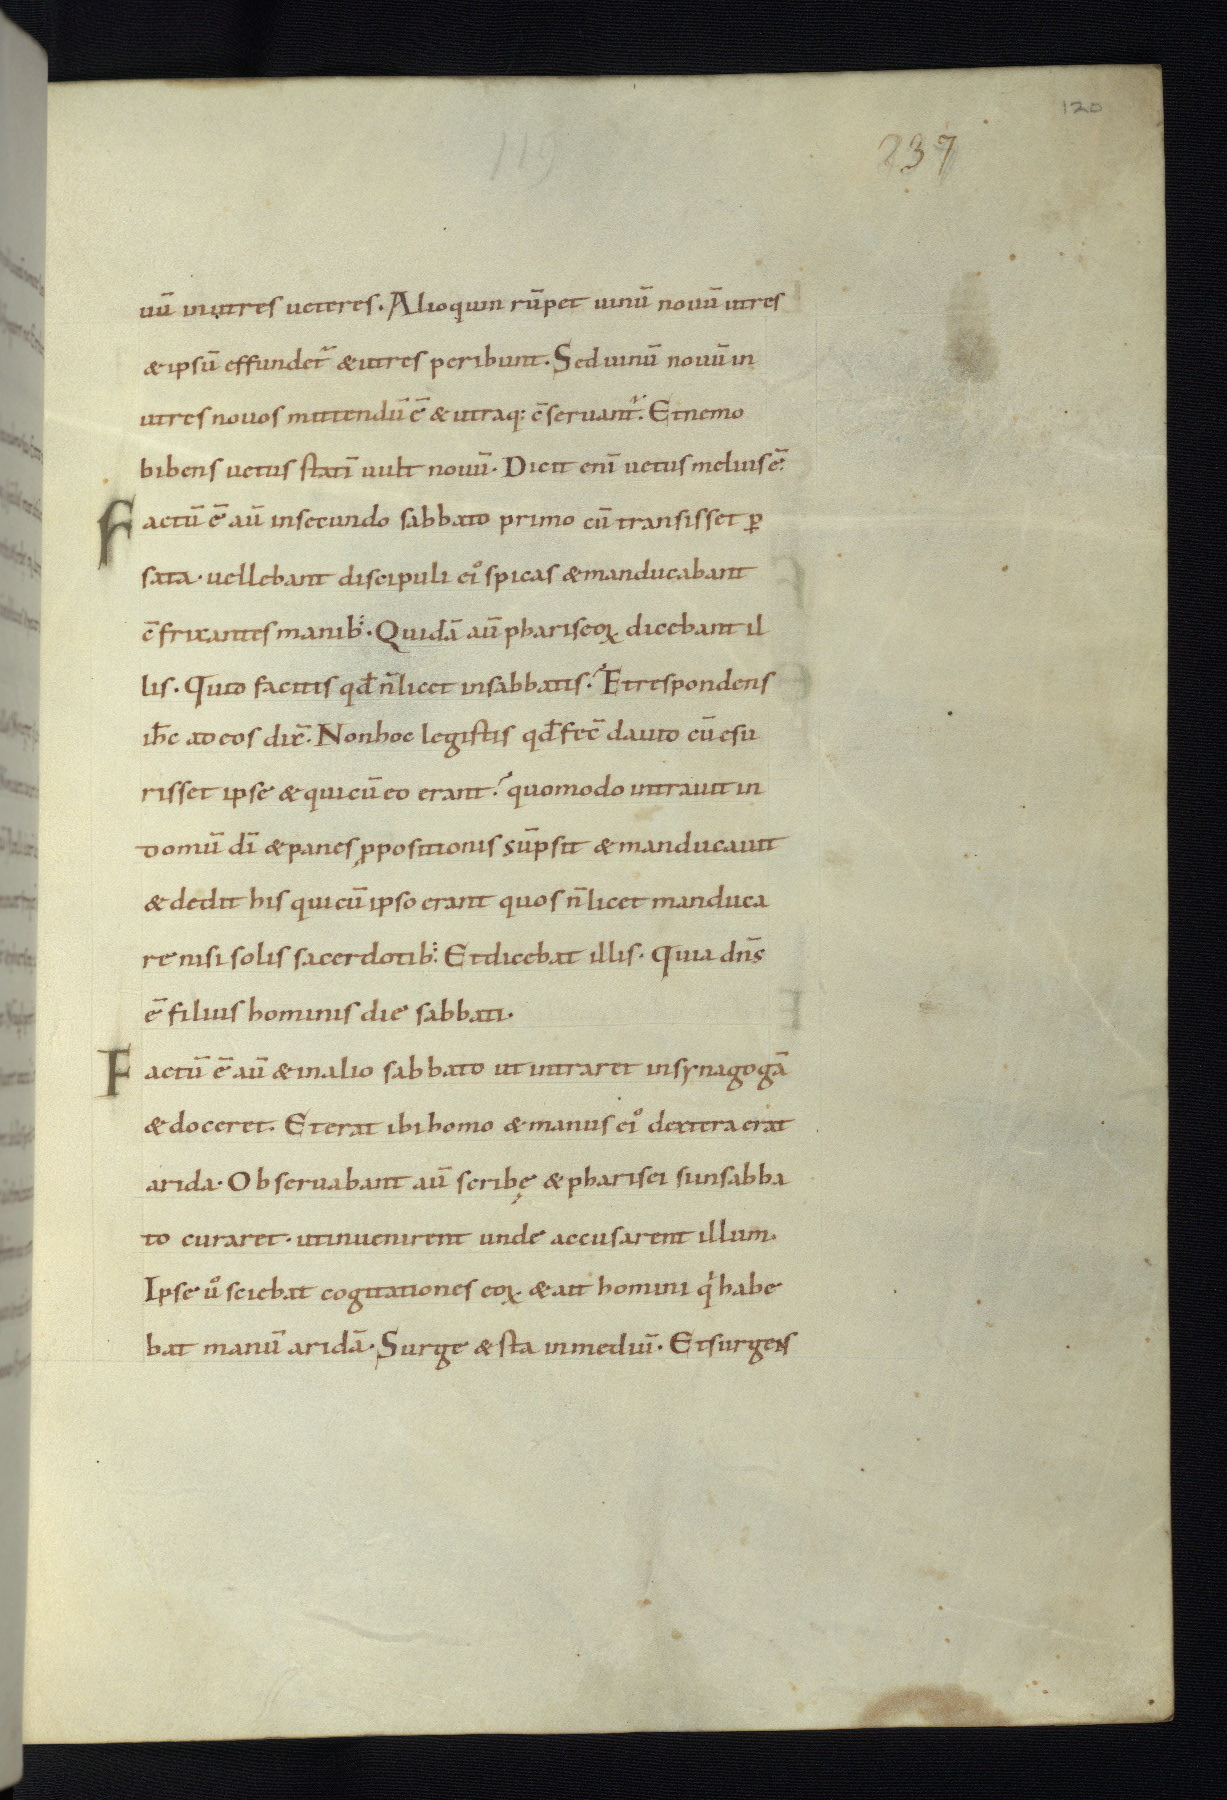 120
119
237
uū in utres ueteres. Alioquin rūpet uinū nouū utres
& ipsū effundet᷑ & utres peribunt. Sed uinū nouū in
utres nouos mittendū ē & utraq: c̄seruant᷑. Et nemo
bibens uetus statī uult nouū. Dicit enī uetus melius ē.
Factū ē aū in secundo sabbato primo cū transisset ꝑ
sata. uellebant discipuli ei᷒ spicas & manducabant
c̄fricantes manib᷒. Quidā aū phariseoꝝ dicebant il
lis. Quid facitis qđ n̄ licet in sabbatis? Et respondens
ih̄c ad eos dix̄. Non hoc legistis qđ fec̄ dauid cū esu
risset ipse & qui cū eo erant? quomodo intrauit in
domū dī & panes ꝓpositionis sūpsit & manducauit
& dedit his qui cū ipso erant quos n̄ licet manduca
re nisi solis sacerdotib᷒. Et dicebat illis. Quia dn̄s
ē filius hominis die sabbati.
Factū ē aū & in alio sabbato ut intraret in synagogā
& doceret. Et erat ibi homo & manus ei᷒ dextera erat
arida. Obseruabant aū scribę & pharisei si in sabba
to curaret. ut inuenirent unde accusarent illum.
Ipse uͦ sciebat cogitationes eoꝝ & ait homini qͥ habe
bat manū aridā. Surge & sta in mediū. Et surgens